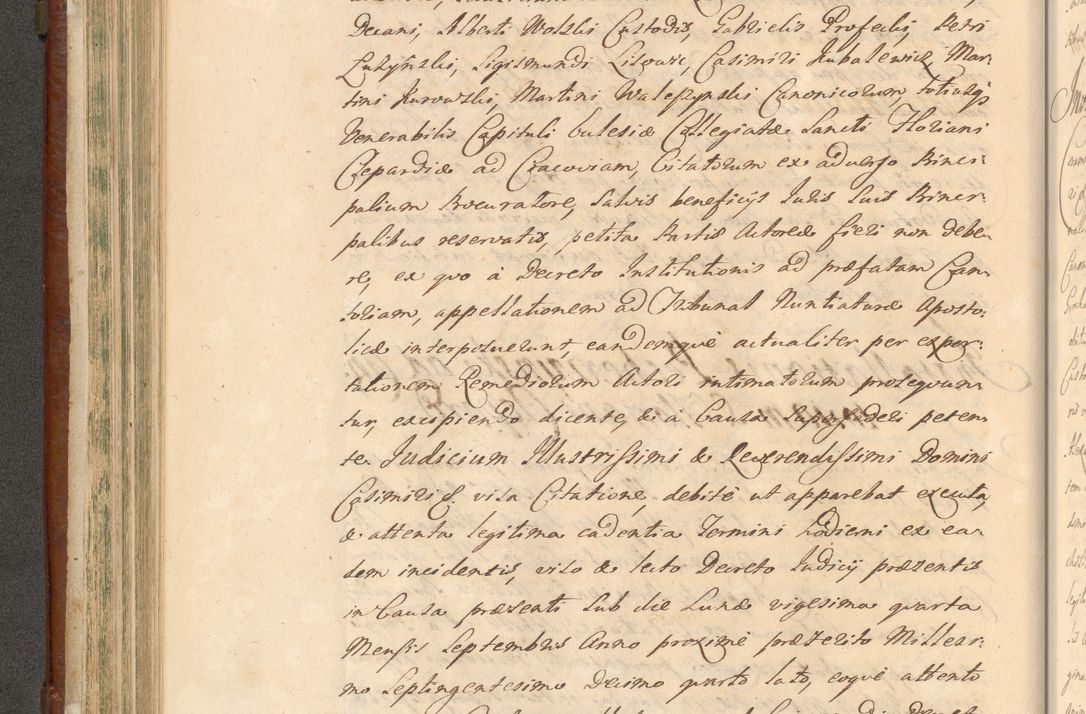 Decani, Alberti Wolski Custodis, Gabrielis Profecki, Petri
Łukyński, Sigismundi Lisowic, Casimiri Kubalewicz Mar-
tini Kurowski, Martini Waleszynski Canonicorum, totiusq;
Venerabilis Capituli Eccłesiæ Collegiatæ Sancti Floriani
Clepardiæ ad Cracoviam, Citatorum ex adverso Princi-
palium Procuratore, salvis beneficijs Juris suis Princi-
palibus reservatis, petita Partis Actoreæ fieri non debe-
re, ex quo à Decreto Institutionis ad præfatam Can-
toriam, appellationem ad Tribunal Nuntiaturæ Aposto-
licæ interposuerunt, eandemquè actualiter per expor-
tationem Remediorum Actori intimatorum prosequun-
tur, excipiendo dicente, & à Causa supersederi peten-
te. Judicium Illustrissimi & Reverendissimi Domini
Casimiri &. visa Citatione, debitè ut apparebat executa,
& attenta legitima cadentia Termini hodierni ex ea-
dem incidentis, viso & lecto Decreto Judicij præsentis
in Causa præsenti sub die Lunæ vigesima quarta
Mensis Septembris Anno proximè præterito Millesi-
mo Septingentesimo Decimo quarto lato, eoquè attento